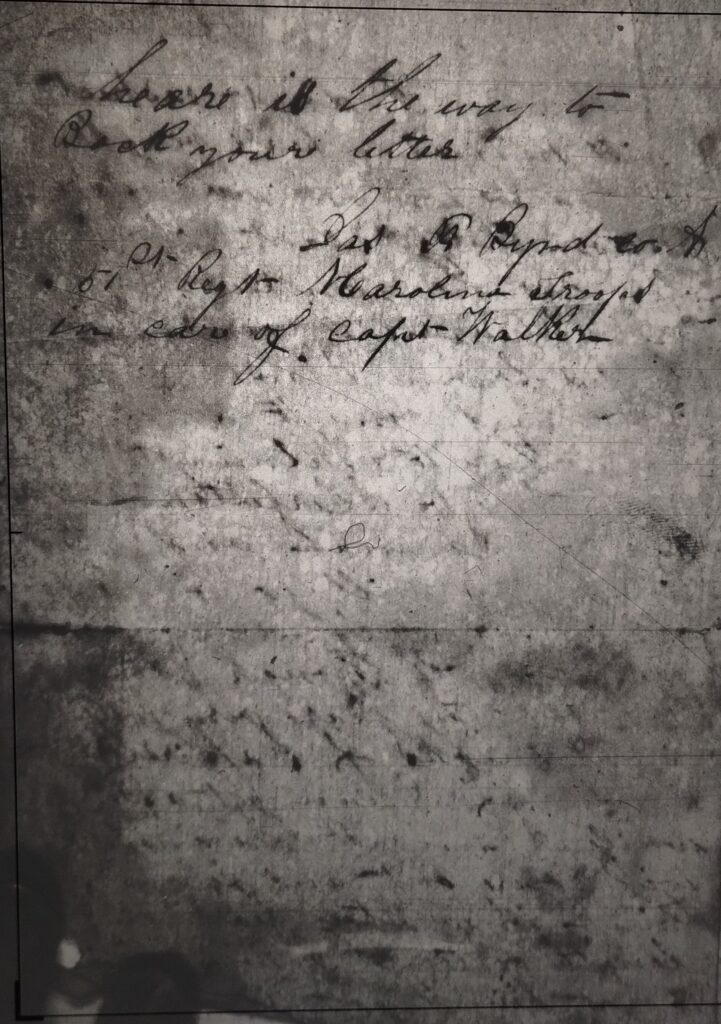 heare is the way to
Back your letter
Jas R Bynd co A
51st Regt N Carolina Troops
in car of. capt Walker